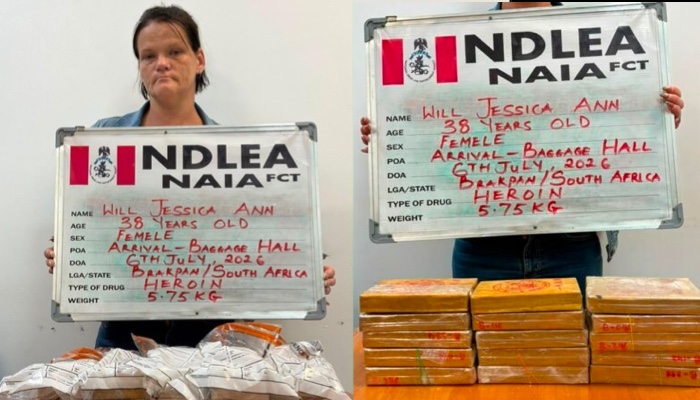 NDLEA
NAIA FCT
NAME WILL JESSICA ANN
AGE 38 YEARS OLD
SEX FEMELE
POA ARRIVAL - BAGGAGE HALL
DOA 6TH JULY, 2026
LGA/STATE BRAKPAN/SOUTH AFRICA
TYPE OF DRUG HEROIN
WEIGHT 5.75 KG
NDLEA
NAIA FCT
NAME WILL JESSICA ANN
AGE 38 YEARS OLD
SEX FEMELE
POA ARRIVAL - BAGGAGE HALL
DOA 6TH JULY, 2026
LGA/STATE BRAKPAN/SOUTH AFRICA
TYPE OF DRUG HEROIN
WEIGHT 5.75 KG